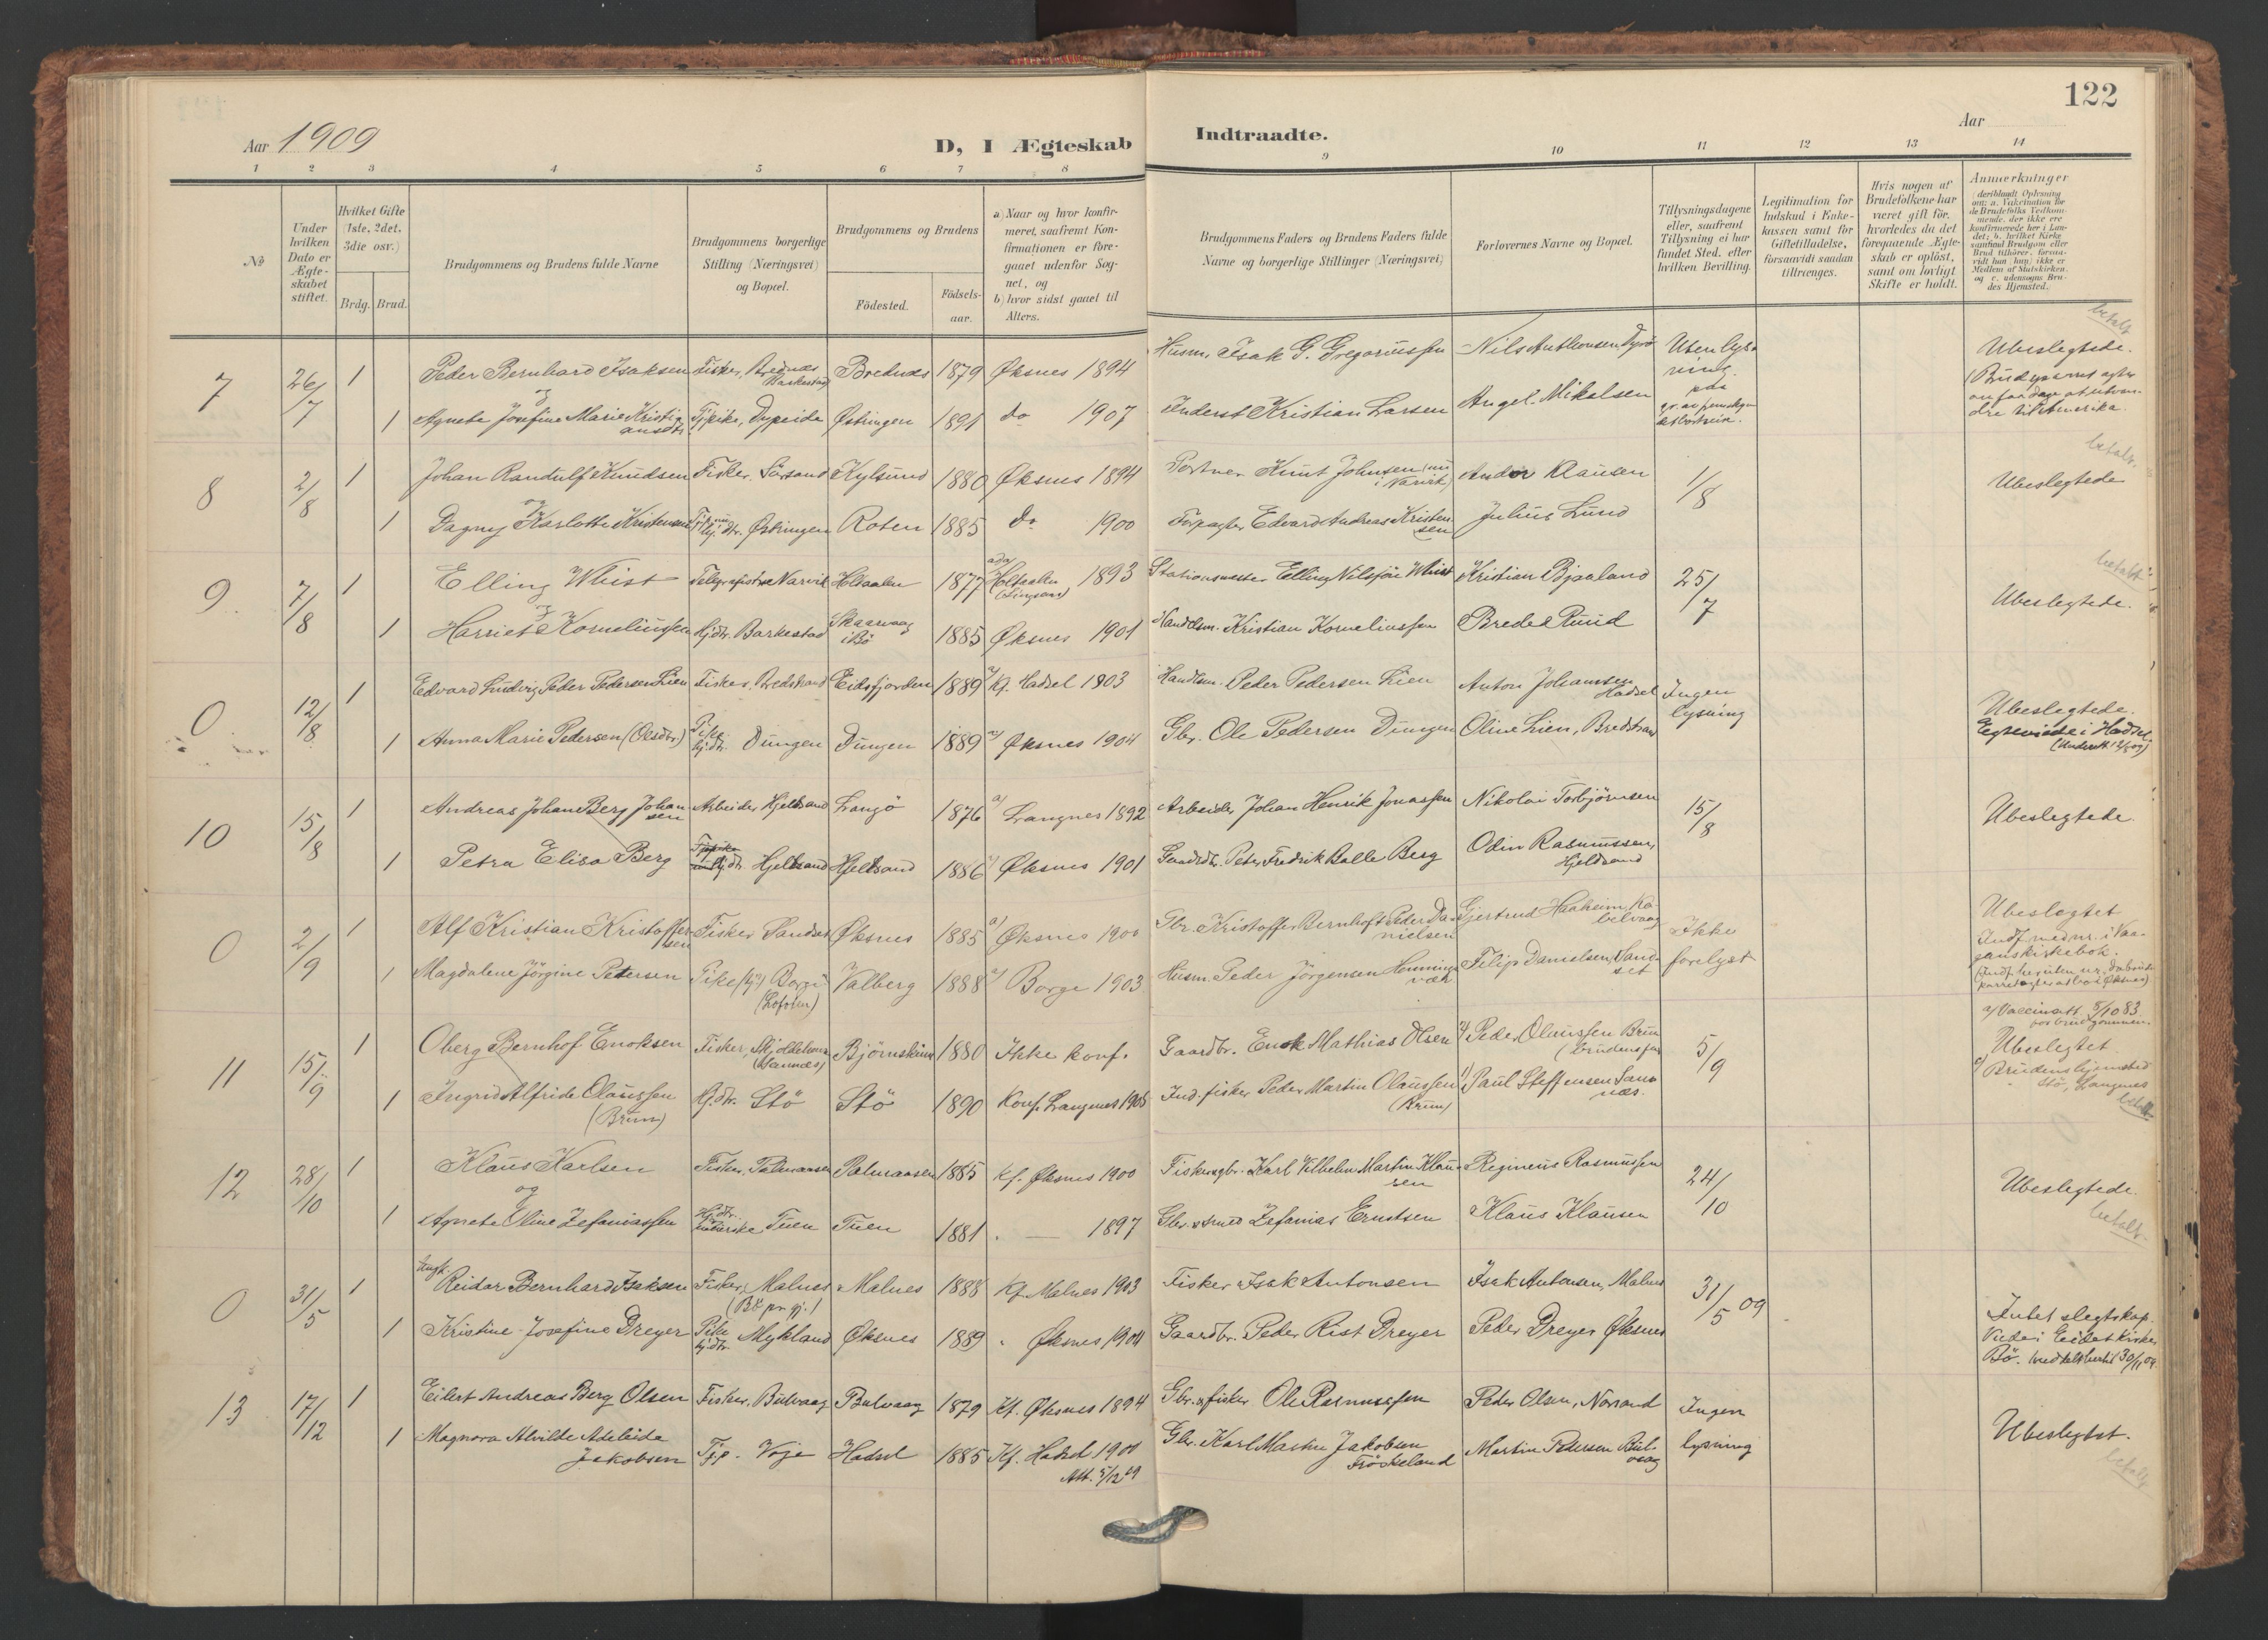 122
Aar 1909
D, I Ægteskab Indtraadte.
Aar
1 2 3 4 5 6 7 8 9 10 11 12 13 14
No
Under hvilken Dato er Ægteskabet stiftet.
Hvilket Gifte (1ste, 2det, 3die osv.)
Brdg. Brud.
Brudgommens og Brudens fulde Navne
Brudgommens borgerlige Stilling (Næringsvei) og Bopæl.
Brudgommens og Brudens
Fødested.
Fødselsaar.
a) Naar og hvor konfirmeret, saafremt Konfirmationen er foregaaet udenfor Sognet, og
b) hvor sidst gaaet til Alters.
Brudgommens Faders og Brudens Faders fulde Navne og borgerlige Stillinger (Næringsvei)
Forlovernes Navne og Bopæl.
Tillysningsdagene eller, saafremt Tillysning ei har fundet Sted, efter hvilken Bevilling.
Legitimation for Indskud i Enkekassen samt for Giftetilladelse, forsaavidt saadan tiltrænges.
Hvis nogen af Brudefolkene har været gift før, hvorledes da det foregaaende Ægteskab er opløst, samt om lovligt Skifte er holdt.
Anmærkninger deriblandt Oplysning om: a. Vakcination for de Brudefolks Vedkommende, der ikke ere konfirmerede her i Landet; b. hvilket Kirkesamfund Brudgom eller Brud tilhører, forsaavidt han (hun) ikke er Medlem af Statskirken, og c. udensogns Brudes Hjemsted.
betalt
7 26/7 1 Peder Bernhard Isaksen Fisker, Brednes Barkestad Brednes 1879 Øksnes 1894 Husm. Isak G. Gregoriussen Nils Anthonsen Dyrø Uten lysning Ubeslegtede.
og
1 Agnete Josefine Marie Kristiansdtr Tjpike, Dypeide Østringen 1891 do 1907 Inderst Kristian Larsen Angel. Mikalsen
(Brudeparret agter om faa dage at utvandre til Amerika.
betalt.
8 2/8 1 Johan Randulf Knudsen Fisker, Sørsand Kylsund 1880 Øksnes 1894 Portner Knut Johnsen (nu i Narvik) Andor Klausen 1/8 Ubeslegtede
og
1 Dagny Karlotte Kristensen Østringen Roten 1885 do 1900 Forpagter Edvard Andreas Kristensen Julius Lund
betalt
9. 7/8 1 Elling Whist Telegrafist Narvik Holtaalen 1877 Holtaalen 1893 Stationsmester Elling Nilssøn Whist Kristian Bjaaland 25/7 Ubeslegtede.
og
1 Harriet Korneliussen Hjdtr. Barkestad Skaarvaag i Bø 1885 Øksnes 1901 Handelsm. Kristian Korneliussen Brede Ruud
0 12/8 1 Edvard Ludvig Peder Pedersen Lien Fisker, Bredstrand Eidsfjorden 1889 kf. Hadsel 1903 Handlsm. Peder Pedersen Lien Anton Johansen Hadsel Ingen lysning Ubeslegtede.
1 Anna Marie Pedersen (Olsdtr) Pike hjdtr. Dungen Dungen 1889 Øksnes 1904 Gbr. Ole Pedersen Dungen Oline Lien, Bredstrand
Egtevidde i Hadsel
10 15/8 1 Andreas Johan Berg Johansen Arbeider Hjeltsand Langø 1876 a/ Langnes 1892 Arbeider Johan Henrik Jonassen Nikolai Torbjørnsen 15/8 Ubeslegtede.
1 Petra Elisa Berg Hjdtr. Hjeltsand Hjeltsand 1886 Øksnes 1901 Gaardbr. Peter Fredrik Balle Berg Odin Rasmussen, Hjeldsand
0 2/9 1 Alf Kristian Kristoffersen Fisker Sandset Øksnes 1885 a/ Øksnes 1900 Gbr. Kristoffer Bernhoft Peder Danielsen Gjertrud Haaheim, Kabelvaag Ikke forelyst Ubeslegtet
1 Magdalene Jørgine Petersen Pike (hj) Borge (Lofoten) Valberg 1888 a/ Borge 1903 Husm. Peder Jørgensen Henningsvær Filip Danielsen, Sandset
Indf. med nr. i Vaagans kirkebok.
a/ Vaccinatt. 5/10 83 for brudgommen.
11 15/9 1 Oberg Bernhof Enoksen Fisker, Skjoldehavn Bjørnskinn 1880 Ikke konf. Gaardbr. Enok Mathias Olsen Peder Olaussen Brun (brudens far 5/9 Ubeslegtet
1 Ingrid Alfride Olaussen (Brun) Hjdtr. Stø Stø 1890 Konf. Langenes 1905 Ind. fisker Peder Martin Olaussen (Brun) Paul Steffensen Sannæs.
Brudens hjemsted Stø, Langnes
betalt
12 28/10 1 Klaus Karlsen Fisker, Tolmaasen Tolmaasen 1885 kf. Øksnes 1900 Fisker, gbr. Karl Vilhelm Martin Klausen Regineus Rasmussen 24/10 Ubeslegtede.
og
1 Agnete Oline Zefaniassen Hjdtr. Tuen Tuen 1881 1897 Gbr. & smed Zefanias Ernstsen Klaus Klausen
betalt
0 31/5 1 Ungk. Reidar Bernhard Isaksen Fisker, Malnes Malnes 1888 Kf. Malnes 1903 Fisker Isak Antonsen Isak Antonsen, Malnes 31/5 09
1 Kristine Josefine Dreyer Pike hjdtr. Mykland Øksnes 1889 Øksnes 1904 Gaardbr. Peder Rist Dreyer Peder Dreyer Øksnes
Intet slegtskap.
Viede i Eidet kirke Bø. meddelt hertil 30/11 09
13 17/12 1 Eilert Andreas Berg Olsen Fisker, Bulvaag Bulvaag 1879 Kf. Øksnes 1894 Gbr. & fisker Ole Rasmussen Peder Olsen, Norsand Ingen lysning Ubeslegtet.
1 Magnora Alvilde Adeleide Jakobsen Tjp. Voje Hadsel 1885 Kf. Hadsel 1900 Att. 5/12 09 Gbr. Karl Martin Jakobsen Frøskeland Martin Pedersen Bulvaag
betalt